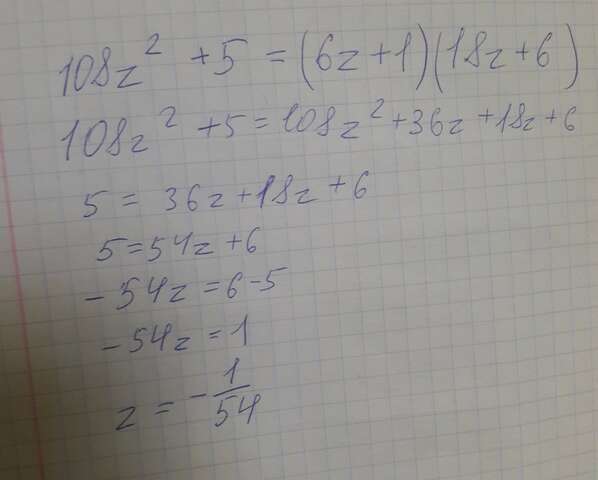 108z² + 5 = (6z + 1)(18z + 6)
108z² + 5 = 108z² + 36z + 18z + 6
5 = 36z + 18z + 6
5 = 54z + 6
- 54z = 6 - 5
- 54z = 1
z = - 1/54